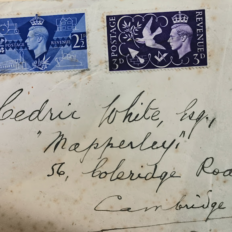 2½
POSTAGE REVENUE
3D 3D
Cedric White, Esq.,
"Mapperley"
56, Coleridge Road
Cambridge